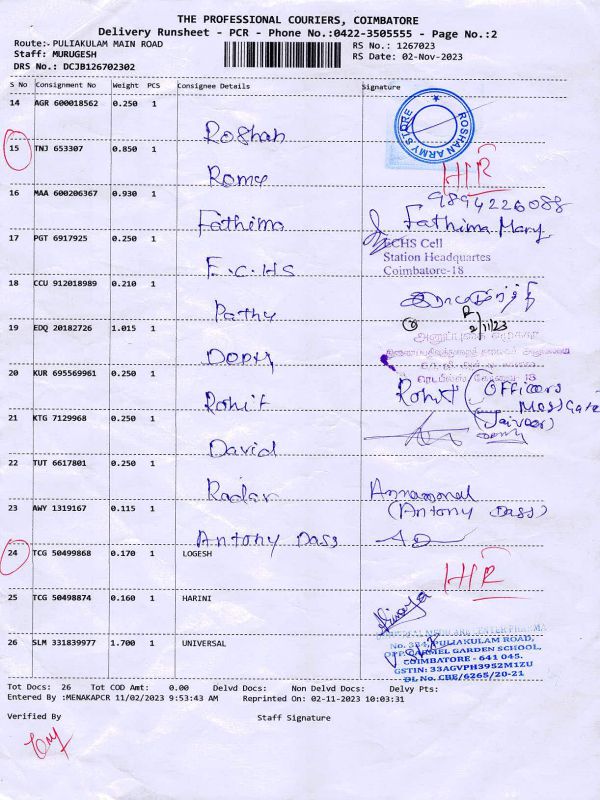 THE PROFESSIONAL COURIERS, COIMBATORE
Delivery Runsheet - PCR - Phone No.:0422-3505555 - Page No.:2
Route:- PULIAKULAM MAIN ROAD
Staff: MURUGESH
DRS No.: DCJB126702302
RS No.: 1267023
RS Date: 02-Nov-2023
S No Consignment No Weight PCS Consignee Details Signature
14 AGR 600018562 0.250 1 Roshan
ROSHAN ARMY STORE
15 TNJ 653307 0.850 1 Romy
16 MAA 600206367 0.930 1 Fathima
9894226088
Fathima Mary
17 PGT 6917925 0.250 1 E.C.HS
ECHS Cell
Station Headquartes
Coimbatore-18
18 CCU 912018989 0.210 1 Pathy
19 EDQ 20182726 1.015 1
2/11/23
20 KUR 695569961 0.250 1 Rohit
Rohit
Officers
Mess Gate
21 KTG 7129968 0.250 1 David
22 TUT 6617801 0.250 1 Radar
23 AWY 1319167 0.115 1 Antony Dass
(Antony Dass)
24 TCG 50499868 0.170 1 LOGESH
25 TCG 50498874 0.160 1 HARINI
26 SLM 331839977 1.700 1 UNIVERSAL
No. 334, PULIAKULAM ROAD,
OPP. CARMEL GARDEN SCHOOL,
COIMBATORE - 641 045.
GSTIN: 33AGVPH3952M1ZU
DL No. CBE/6265/20-21
Tot Docs: 26 Tot COD Amt: 0.00 Delvd Docs: Non Delvd Docs: Delvy Pts:
Entered By :MENAKAPCR 11/02/2023 9:53:43 AM Reprinted On: 02-11-2023 10:03:31
Verified By
Staff Signature